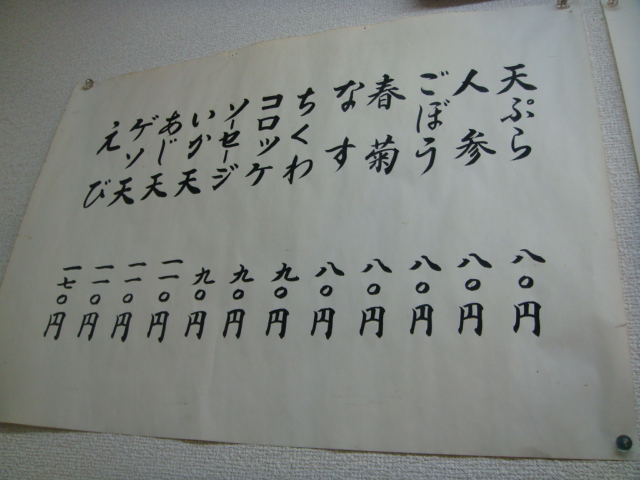 天ぷら 八〇円
人参 八〇円
ごぼう 八〇円
春菊 八〇円
なす 八〇円
ちくわ 九〇円
コロッケ 九〇円
ソーセージ 九〇円
いか天 一一〇円
あじ天 一一〇円
ゲソ天 一一〇円
えび 一七〇円